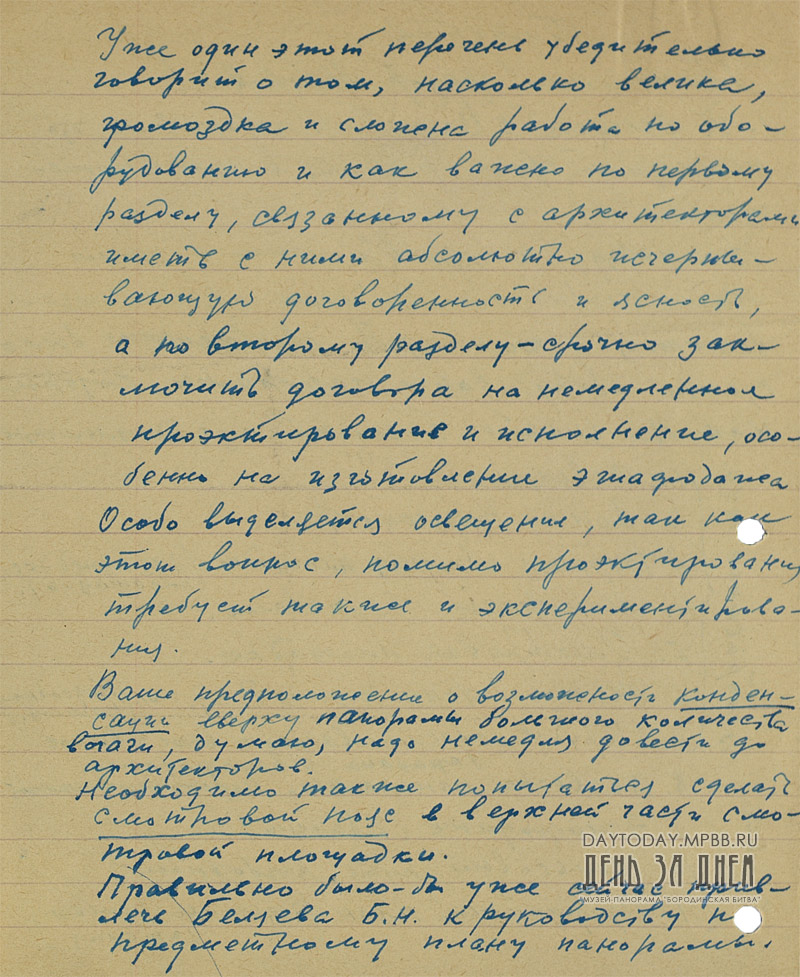 Уже один этот перечень убедительно
говорит о том, насколько велика,
громоздка и сложена работа по обо-
рудованию и как важно по первому
разделу, связанному с архитекторами
иметь с ними абсолютно исчерпы-
вающую договоренность и ясность,
а по второму разделу – срочно зак-
лючить договора на немедленное
проэктирование и исполнение, осо-
бенно на изготовление эшафодажа
Особо выделяется освещение, так как
этот вопрос, помимо проэктирования
требует также и экспериментирова-
ния.
Ваше предположение о возможности конден-
сации вверху панорамы большого количества
влаги, думаю, надо немедля довести до
архитекторов.
Необходимо также попытаться сделать
смотровой пояс в верхней части смо-
тровой площадки.
Правильно было-бы уже сейчас прив-
лечь Беляева Б.Н. к руководству по
предметному плану панорамы.
DAYTODAY.MPBB.RU
ДЕНЬ ЗА ДНЕМ
МУЗЕЙ-ПАНОРАМА "БОРОДИНСКАЯ БИТВА"